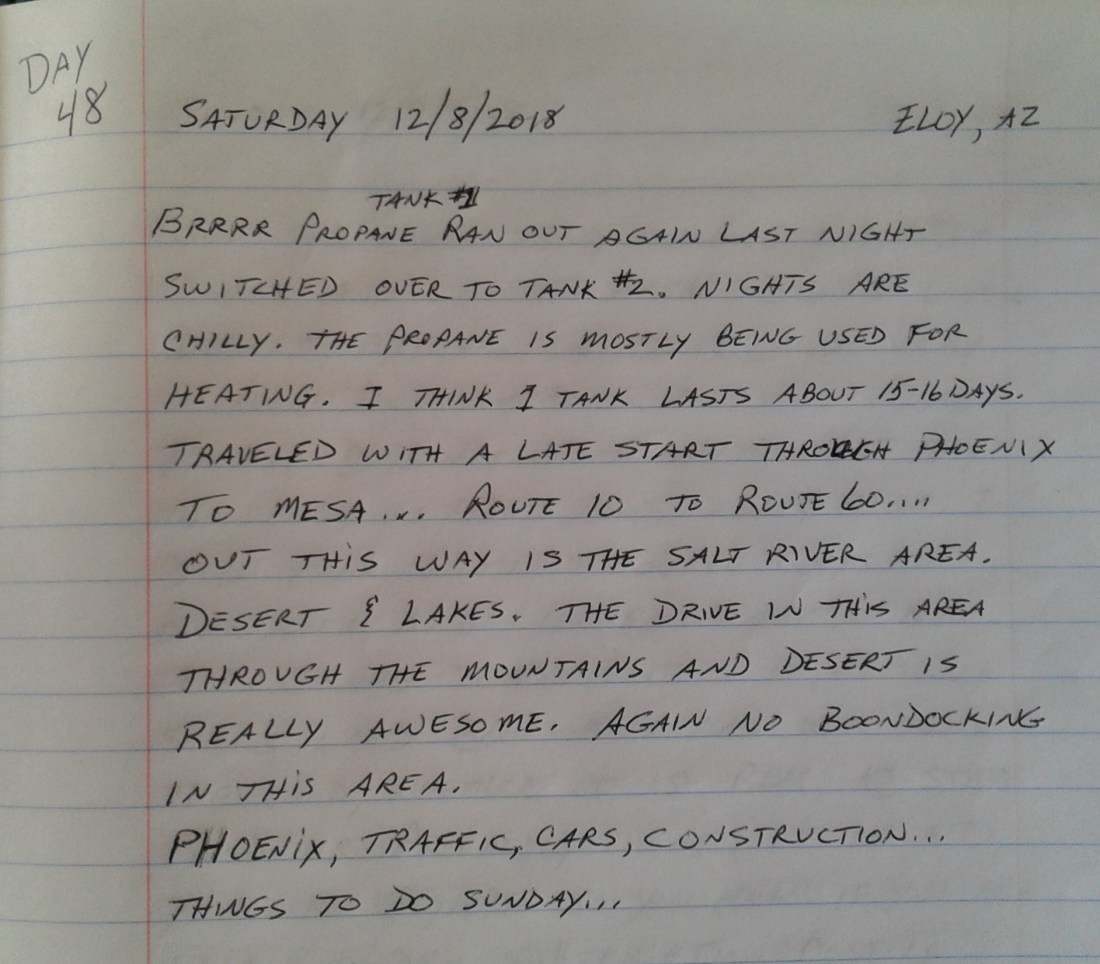 DAY
48
SATURDAY 12/8/2018 ELOY, AZ
TANK #1
BRRRR PROPANE RAN OUT AGAIN LAST NIGHT
SWITCHED OVER TO TANK #2. NIGHTS ARE
CHILLY. THE PROPANE IS MOSTLY BEING USED FOR
HEATING. I THINK 1 TANK LASTS ABOUT 15-16 DAYS.
TRAVELED WITH A LATE START THROUGH PHOENIX
TO MESA... ROUTE 10 TO ROUTE 60....
OUT THIS WAY IS THE SALT RIVER AREA.
DESERT & LAKES. THE DRIVE IN THIS AREA
THROUGH THE MOUNTAINS AND DESERT IS
REALLY AWESOME. AGAIN NO BOONDOCKING
IN THIS AREA.
PHOENIX, TRAFFIC, CARS, CONSTRUCTION...
THINGS TO DO SUNDAY...